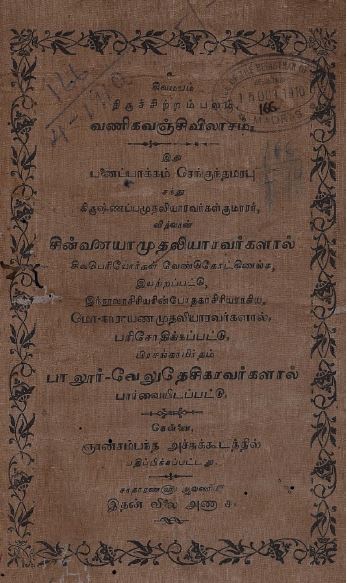 சிவமயம்
திருச்சிற்றம்பலம்.
வணிகவஞ்சிவிலாசம்.
இது
பனைப்பாக்கம் செங்குந்தமரபு
சந்து
கிருஷ்ணப்பமுதலியாரவர்கள்குமாரர்,
வித்வான்
சின்வையாமுதலியாரவர்களால்
சிவபெரியோர்கள் வேண்டுகோட்கிணங்க,
இயற்றப்பட்டு,
மோ-நாராயண முதலியாரவர்களால்,
பரிசோதிக்கப்பட்டு,
பிரசங்காமிர்தம்
பாலூர்-வேலுதேசிகரவர்களால்
பார்வையிடப்பட்டு,
சென்னை,
ஞானசம்பந்த அச்சுக்கூடத்தில்
பதிப்பிக்கப்பட்டது.
சாதாரண௵ ஆவணி௴
இதன் விலை அணா ௪.
166
15 OCT 1910
166.
MADRAS